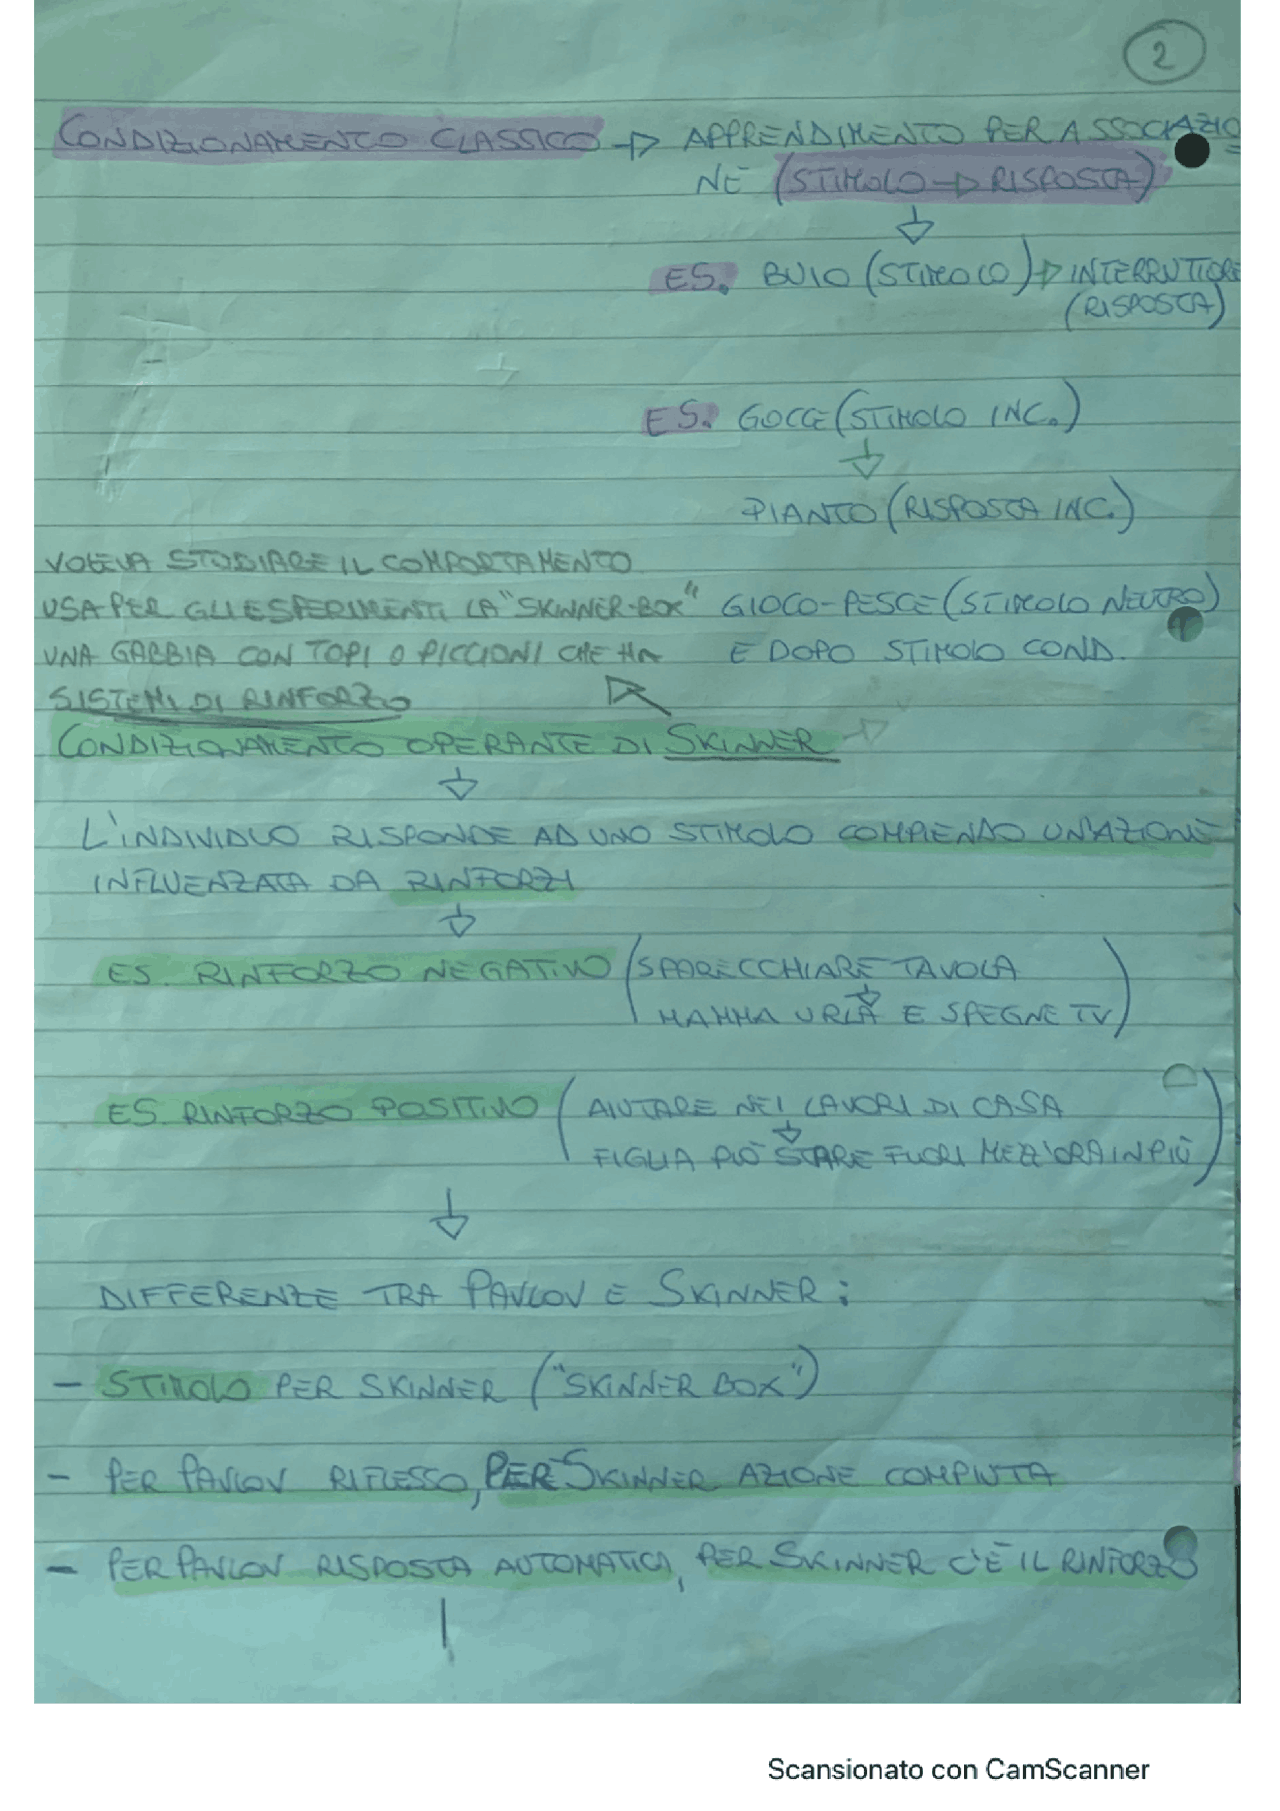 2
CONDIZIONAMENTO CLASSICO → APPRENDIMENTO PER ASSOCIAZIO
NE (STIMOLO → RISPOSTA)
ES. BUIO (STIMOLO) → INTERRUTTORE
(RISPOSTA)
ES. GOCCE (STIMOLO INC.)
PIANTO (RISPOSTA INC.)
GIOCO-PESCE (STIMOLO NEUTRO)
E DOPO STIMOLO COND.
VOLEVA STUDIARE IL COMPORTAMENTO
USA PER GLI ESPERIMENTI LA "SKINNER-BOX"
UNA GABBIA CON TOPI O PICCIONI CHE HA
SISTEMI DI RINFORZO
CONDIZIONAMENTO OPERANTE DI SKINNER →
L'INDIVIDUO RISPONDE AD UNO STIMOLO COMPIENDO UN'AZIONE
INFLUENZATA DA RINFORZI
ES. RINFORZO NEGATIVO (SPARECCHIARE TAVOLA
MAMMA URLA E SPEGNE TV)
ES. RINFORZO POSITIVO (AIUTARE NEI LAVORI DI CASA
FIGLIA PUÒ STARE FUORI MEZZ'ORA IN PIÙ)
DIFFERENZE TRA PAVLOV E SKINNER:
- STIMOLO PER SKINNER ("SKINNER BOX")
- PER PAVLOV RIFLESSO, PER SKINNER AZIONE COMPIUTA
- PER PAVLOV RISPOSTA AUTOMATICA, PER SKINNER C'È IL RINFORZO
Scansionato con CamScanner